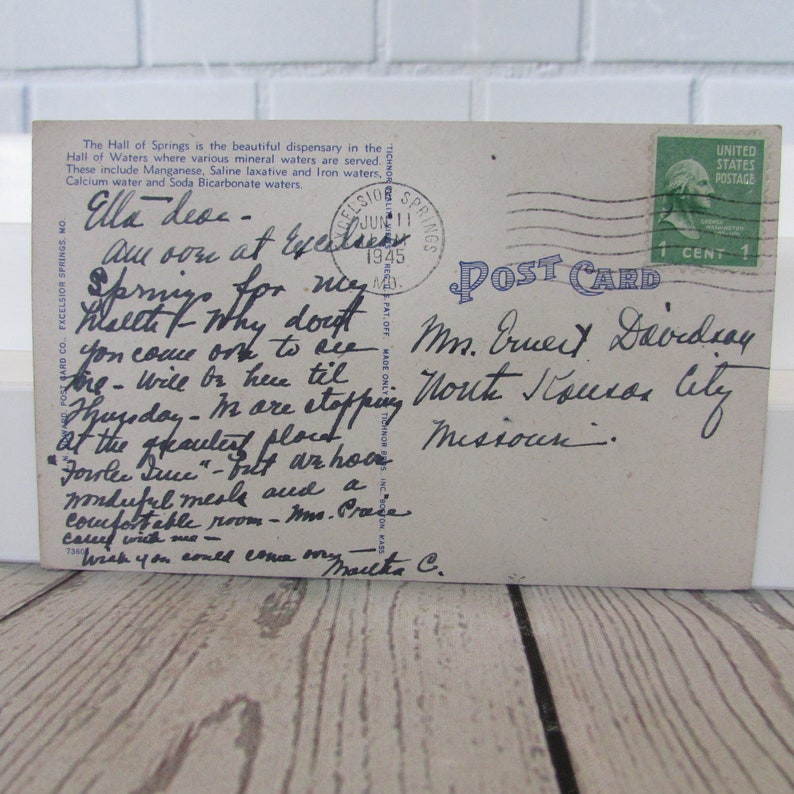 The Hall of Springs is the beautiful dispensary in the
Hall of Waters where various mineral waters are served.
These include Manganese, Saline laxative and Iron waters,
Calcium water and Soda Bicarbonate waters.
Ella dear -
Am over at Excelsior
Springs for my
health - Why don't
you come over to see
me - Will be here til
Thursday - We are stopping
at the quaintest place
"Fowler Inn" - but we have
wonderful meals and a
comfortable room - Mrs.
came with me -
Wish you could come over -
Martha C.
POST CARD CO., EXCELSIOR SPRINGS, MO.
7360
TICHNOR QUALITY VIEWS REG. U.S. PAT. OFF. MADE ONLY BY TICHNOR BROS. INC. BOSTON, MASS.
EXCELSIOR SPRINGS
JUN 11
1945
MO.
UNITED
STATES
POSTAGE
GEORGE
WASHINGTON
1 CENT 1
POST CARD
Mrs. Ernest Davidson
North Kansas City
Missouri.